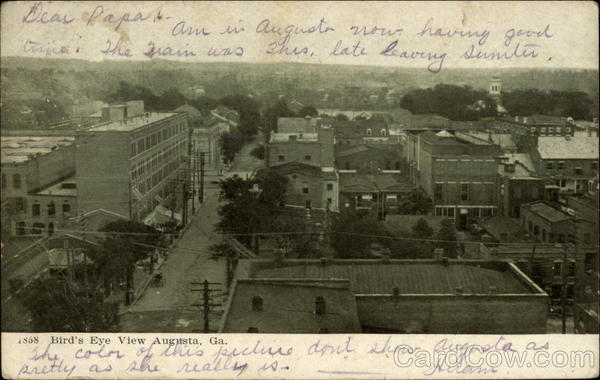 Dear Papa:
Am in Augusta now having good
time. The train was This, late leaving Sumter.
1858 Bird's Eye View Augusta, Ga.
The color of this picture dont show Augusta as
pretty as she really is.
CardCow.com